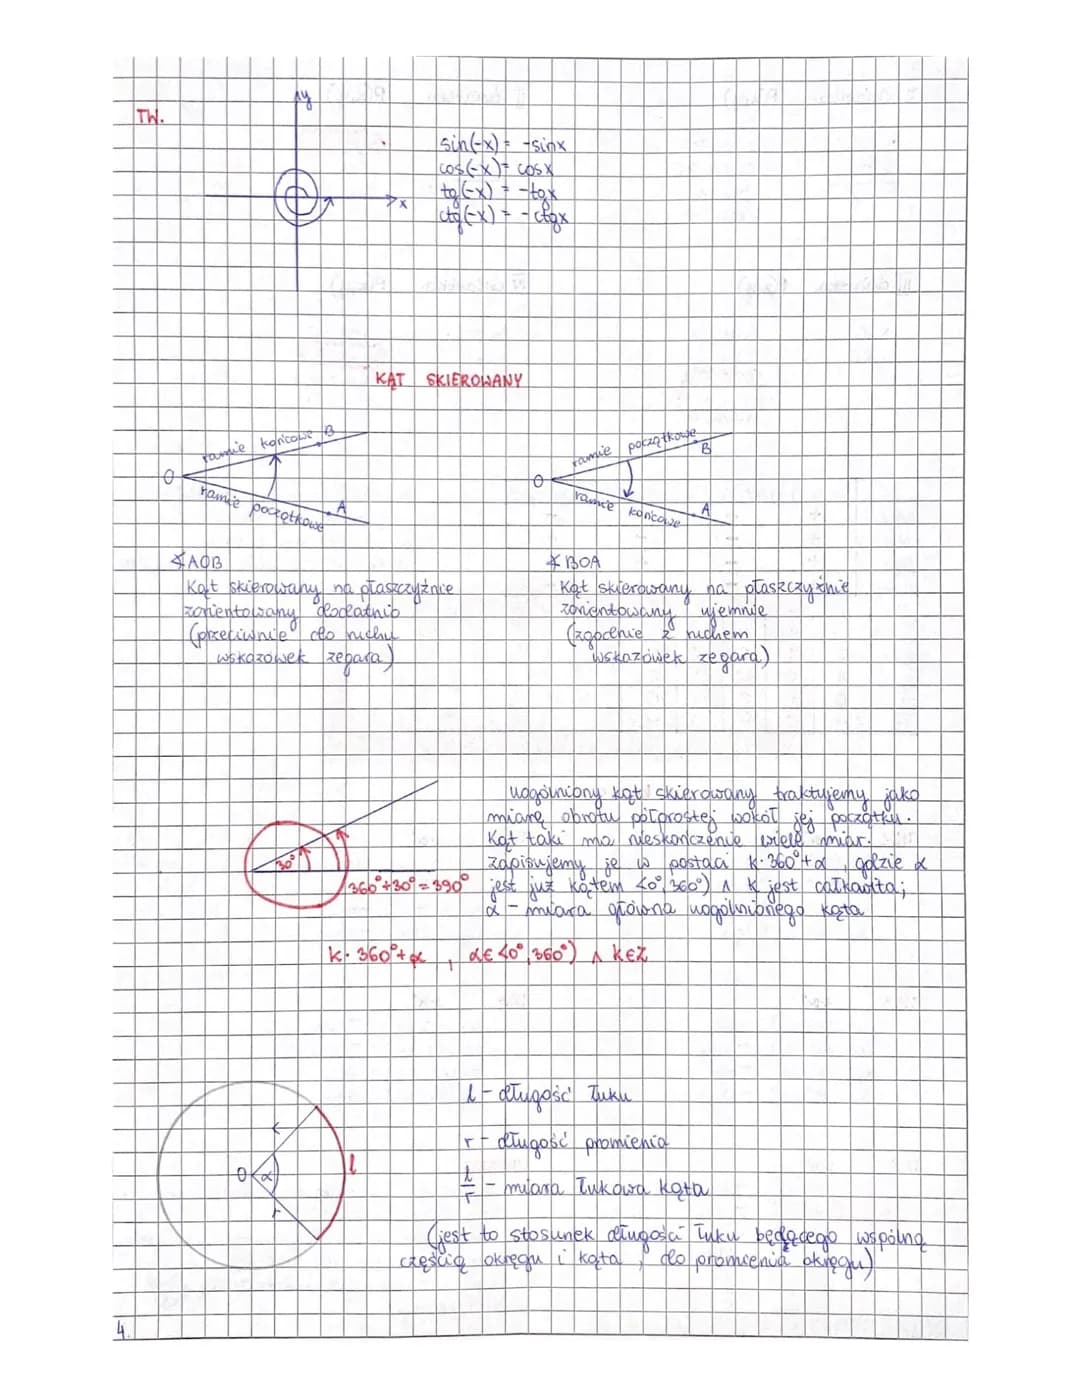 TW.
y
x
sin(-x) = -sinx
cos(-x) = cosx
tg(-x) = -tgx
ctg(-x) = -ctgx
KĄT SKIEROWANY
ramie końcowe B
O
ramie początkowe A
ramie początkowe B
O
ramie końcowe A
∢AOB
Kąt skierowany na płaszczyźnie
zorientowany dodatnio
(przeciwnie do ruchu
wskazówek zegara)
∢BOA
Kąt skierowany na płaszczyźnie
zorientowany ujemnie
(zgodnie z ruchem
wskazówek zegara)
30°
360°+30°=390°
uogólniony kąt skierowany traktujemy jako
miarę obrotu półprostej wokół jej początku.
Kąt taki ma nieskończenie wiele miar.
Zapisujemy je w postaci k·360°+α, gdzie α
jest już kątem <0°,360°) ∧ k jest całkowita;
α - miara główna uogólnionego kąta
k·360°+α , α∈<0°,360°) ∧ k∈Z
l - długość łuku
r - długość promienia
l/r - miara łukowa kąta
(jest to stosunek długości łuku będącego wspólną
częścią okręgu i kąta, do promienia okręgu)
O α l
r
r
4.